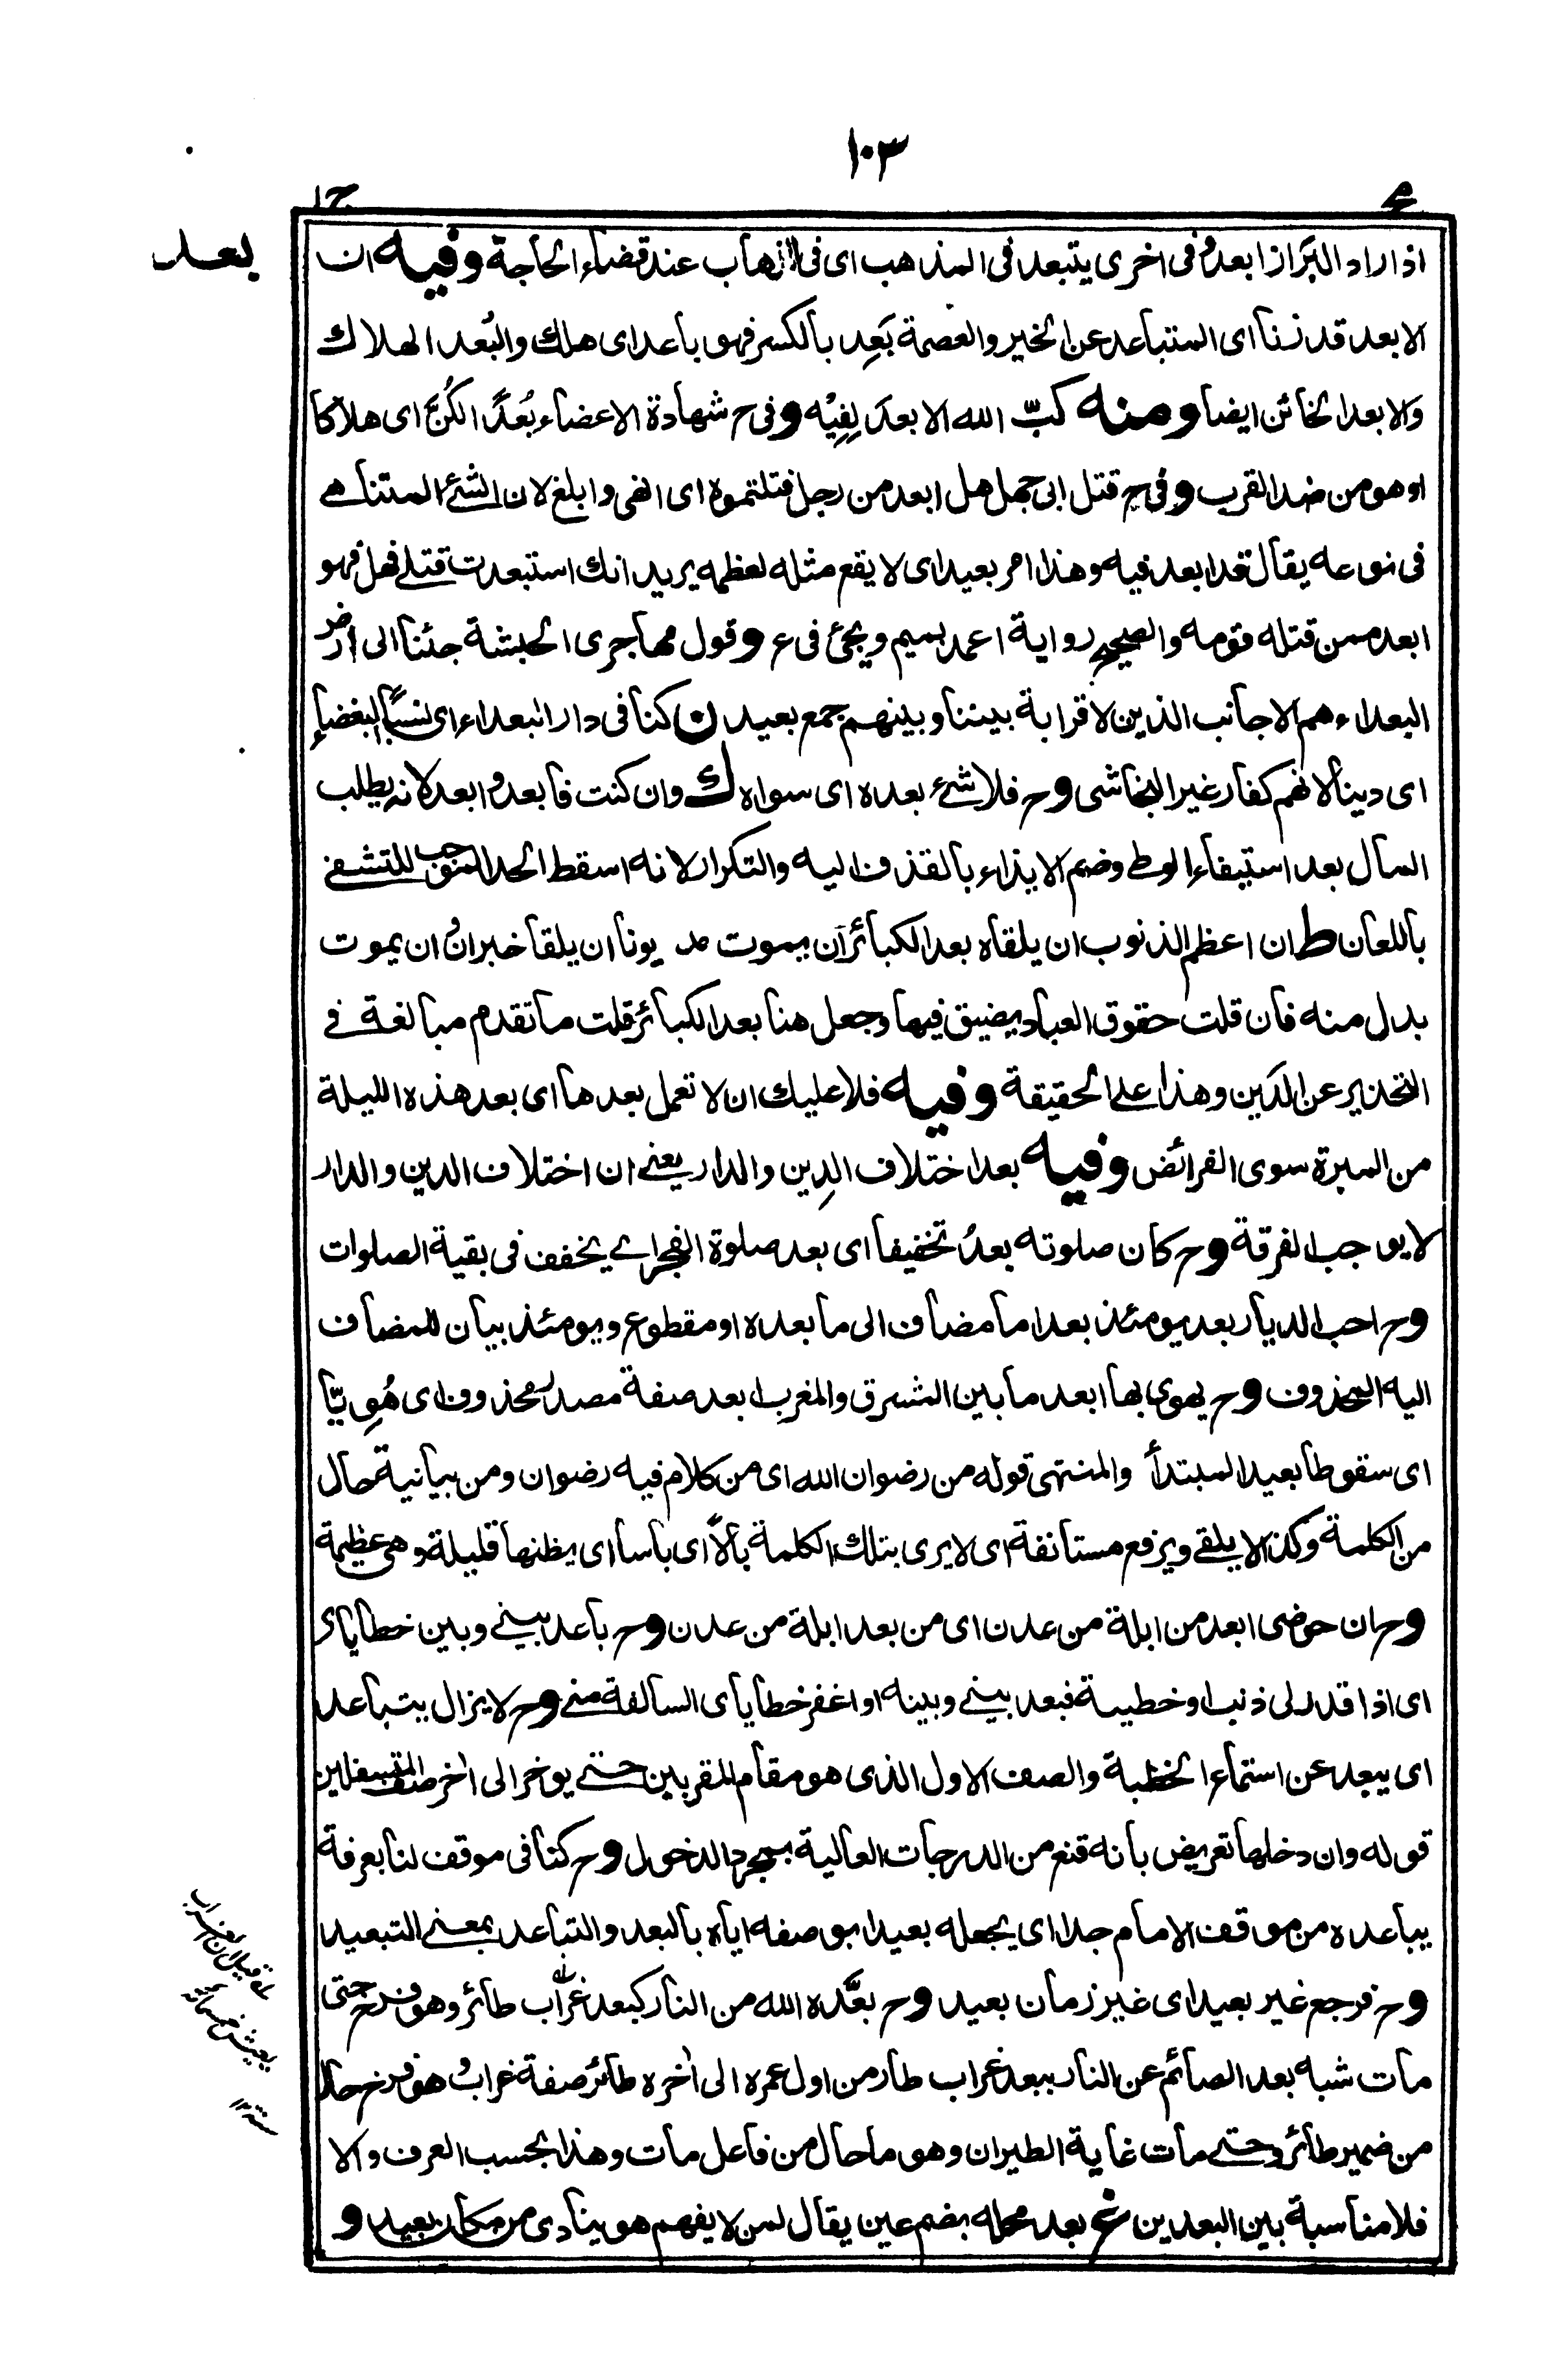 ١٠٣
ج ١
بعد
اذا اراد البراز ابعد وفى اخرى يتبعد فى المذهب اى فى الذهاب عند قضاء الحاجة وفيه ان
الابعد قد زنا اى المتباعد عن الخير والعصمة بَعِد بالكسر فهو باعد اى هلك والبُعد الهلاك
والابعد الخائن ايضا ومنه كبّ الله الابعد لِفِيْه وفى ح شهادة الاعضاء بُعْدًا لكُنَّ اى هلاكا
او هو من ضد القرب وفى ح قتل ابى جهل هل ابعد من رجل قتلتموه اى انهى وابلغ لان الشئ المتناهى
فى نوعه يقال قد ابعد فيه وهذا امر بعيد اى لا يقع مثله لعظمه يريد انك استبعدت قتلى فهل هو
ابعد ممن قتله قومه والصحيح رواية اعمد بميم ويجئ فى ع وقول مهاجرى الحبشة جئنا الى ارض
البعداء هم الاجانب الذين لا قرابة بيننا وبينهم جمع بعيد ن كنا فى دار البعداء اى نسبًا البغضاء
اى دينا لانهم كفار غير النجاشى وح فلا شئ بعده اى سواه ك وان كنت فابعد وابعد لانه يطلب
المال بعد استيفاء الوطى وضم الايذاء بالقذف اليه والتكرار لانه اسقط الحد الموجب للتشفى
باللعان ط ان اعظم الذنوب ان يلقاه بعد الكبائر ان يموت مديونا ان يلقا خبر ان وان يموت
بدل منه فان قلت حقوق العباد يضيق فيها وجعل هنا بعد الكبائر قلت ما تقدم مبالغة فى
التحذير عن الدَين وهذا على الحقيقة وفيه فلا عليك ان لا تعمل بعدها اى بعد هذه الليلة
من المبرة سوى الفرائض وفيه بعد اختلاف الدِين والدار يعنى ان اختلاف الدين والدار
لا يوجب الفرقة وح كان صلوته بعدُ تخفيفا اى بعد صلوة الفجر اى يخفف فى بقية الصلوات
وح احب الديار بعد يومئذ بعد اما مضاف الى ما بعده او مقطوع ويومئذ بيان للمضاف
اليه المحذوف وح يهوى بها ابعد ما بين المشرق والمغرب ابعد صفة مصدر محذوف اى هُوِيّا
اى سقوطا بعيد المبتدأ والمنتهى قوله من رضوان الله اى من كلام فيه رضوان ومن بيانية حال
من الكلمة وكذا لا يلقى ويرفع مستأنفة اى لا يرى بتلك الكلمة بالًا اى باسا اى يظنها قليلة وهى عظيمة
وح ان حوضى ابعد من ايلة من عدن اى من بعد ايلة من عدن وح باعد بينى وبين خطاياى
اى اذا قدر لى ذنب او خطيئة فبعد بينى وبينه او اغفر خطاياى السالفة منى وح لا يزال يتباعد
اى يبعد عن استماع الخطبة والصف الاول الذى هو مقام المقربين حتى يوخر الى اخر صف المتسفلين
قوله وان دخلها تعريض بانه قنع من الدرجات العالية بمجرد الدخول وح كنا فى موقف لنا بعرفة
يباعده من موقف الامام جدا اى يجعله بعيدا بوصفه اياه بالبعد والتباعد بمعنى التبعيد
وح فرجع غير بعيد اى غير زمان بعيد وح بعَّده الله من النار كبعد غراب طائر وهو فرخ حتى
مات شبه بعد الصائم عن النار ببعد غراب طار من اول عمره الى اخره طائر صفة غراب وهو فرخ حال
من ضمير طائر وحتى مات غاية الطيران وهوما حال من فاعل مات وهذا بحسب العرف والا
فلا مناسبة بين البعدين غ بعد محله بضم عين يقال لمن لا يفهم هو ينادى من مكان بعيد و
قيل ان الغراب
يعيش خمسمائة
سنة ١٢